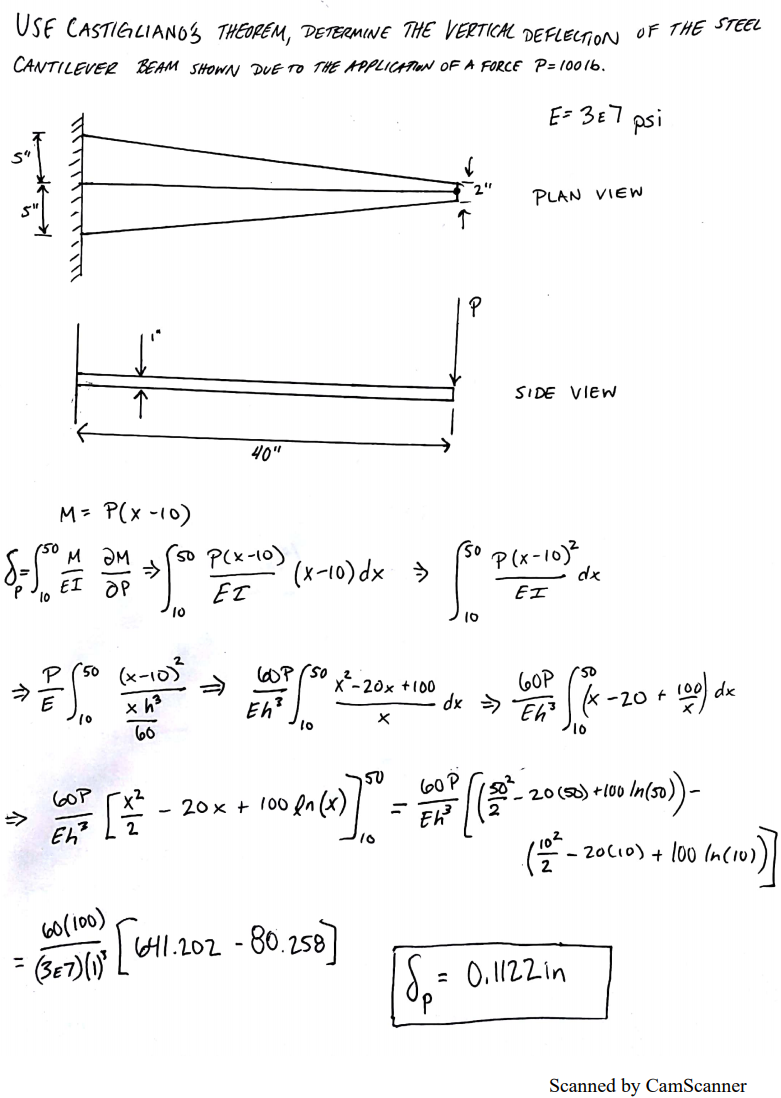 USE CASTIGLIANO'S THEOREM, DETERMINE THE VERTICAL DEFLECTION OF THE STEEL
CANTILEVER BEAM SHOWN DUE TO THE APPLICATION OF A FORCE P=100 lb.
E= 3E7 psi
5"
5"
2"
PLAN VIEW
P
1"
SIDE VIEW
40"
M = P(x-10)
δ_P = ∫_10^50 M/EI ∂M/∂P ⇒ ∫_10^50 P(x-10)/EI (x-10) dx ⇒ ∫_10^50 P(x-10)^2/EI dx
⇒ P/E ∫_10^50 (x-10)^2/(xh^3/60) ⇒ 60P/Eh^3 ∫_10^50 (x^2-20x+100)/x dx ⇒ 60P/Eh^3 ∫_10^50 (x-20+100/x) dx
⇒ 60P/Eh^3 [x^2/2 - 20x + 100 ln(x)]_10^50 = 60P/Eh^3 [(50^2/2 - 20(50) + 100 ln(50)) -
(10^2/2 - 20(10) + 100 ln(10))]
= 60(100)/(3E7)(1)^3 [641.202 - 80.258]
δ_P = 0.1122 in
Scanned by CamScanner